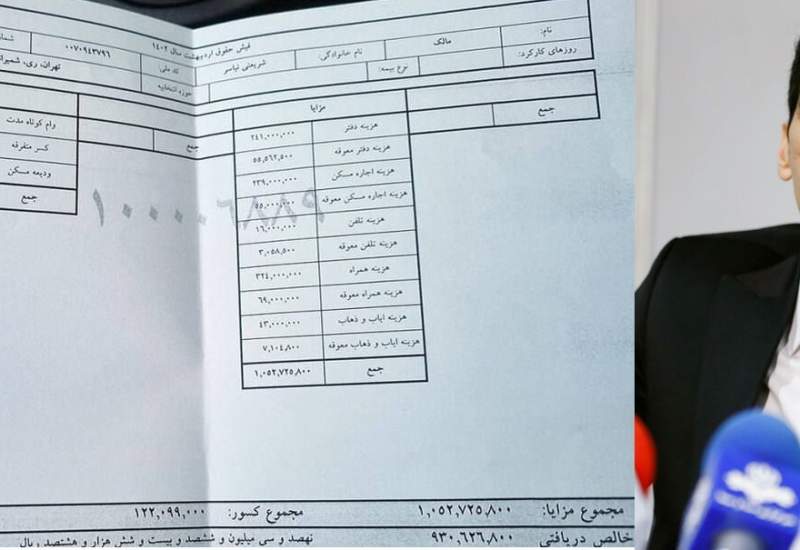 فیش حقوق اردیبهشت سال ۱۴۰۲
نام: مالک نام خانوادگی: شریعتی نیاسر کد ملی: ۰۰۷۰۹۴۳۷۹۶
روزهای کارکرد: نوع بیمه: حوزه انتخابیه تهران، ری، شمیران
مزایا
جمع
جمع
هزینه دفتر ۲۴۱,۰۰۰,۰۰۰
هزینه دفتر معوقه ۵۵,۵۶۲,۵۰۰
هزینه اجاره مسکن ۲۳۹,۰۰۰,۰۰۰
هزینه اجاره مسکن معوقه ۵۵,۰۰۰,۰۰۰
هزینه تلفن ۱۶,۰۰۰,۰۰۰
هزینه تلفن معوقه ۳,۰۵۸,۵۰۰
هزینه همراه ۳۲۴,۰۰۰,۰۰۰
هزینه همراه معوقه ۶۹,۰۰۰,۰۰۰
هزینه ایاب و ذهاب ۴۳,۰۰۰,۰۰۰
هزینه ایاب و ذهاب معوقه ۷,۱۰۴,۸۰۰
جمع ۱,۰۵۲,۷۲۵,۸۰۰
وام کوتاه مدت
کسر متفرقه
ودیعه مسکن
جمع
مجموع مزایا: ۱,۰۵۲,۷۲۵,۸۰۰ مجموع کسور: ۱۲۲,۰۹۹,۰۰۰
خالص دریافتی ۹۳۰,۶۲۶,۸۰۰ نهصد و سی میلیون و ششصد و بیست و شش هزار و هشتصد ریال